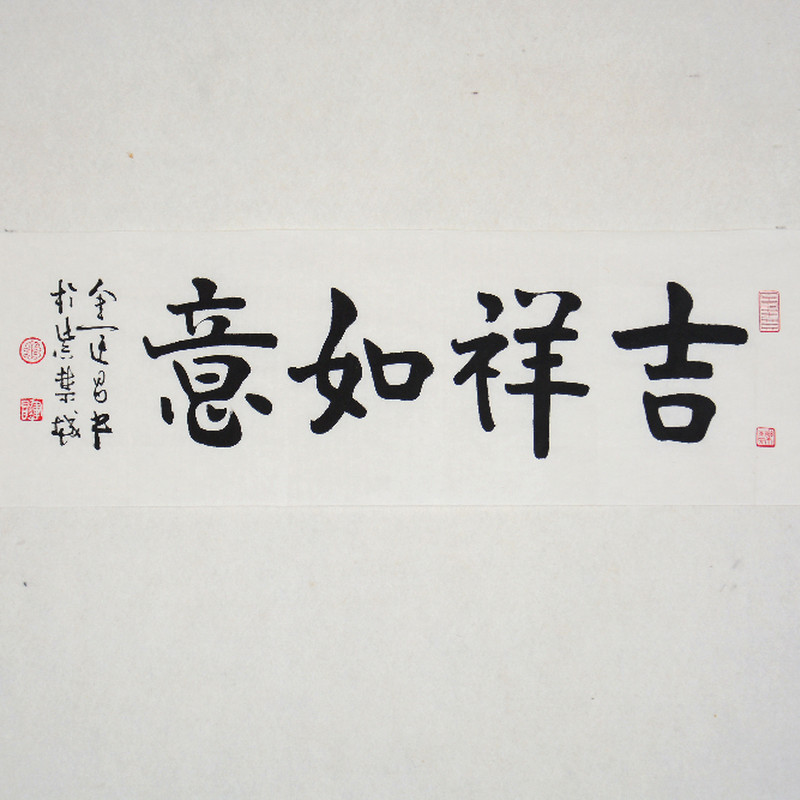 吉祥如意
金运昌书
於紫禁城